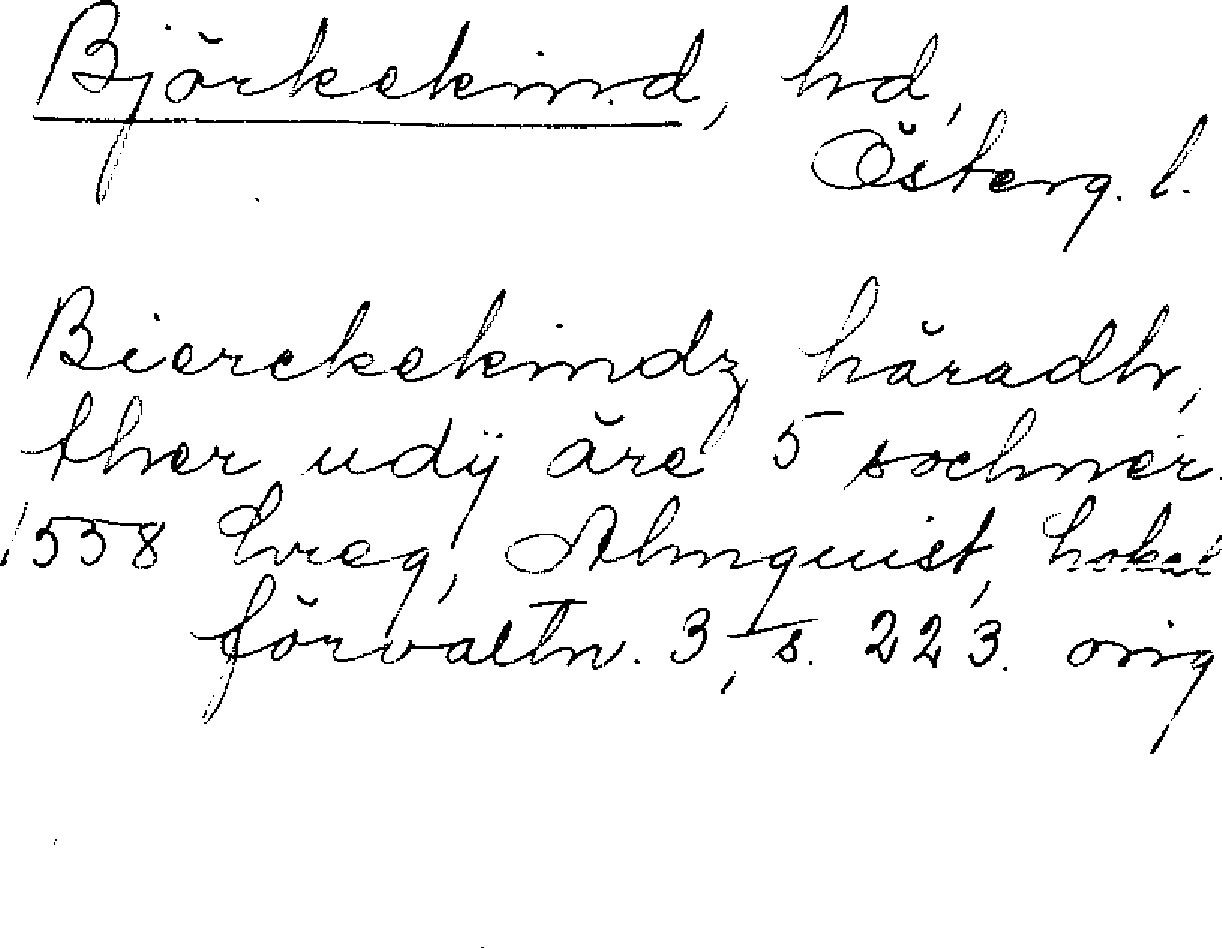 Björkekind, hd,
Österg. l.
Bierckekindz häradh,
ther udÿ äre 5 sochner.
1558 Lreg, Almquist, Lokal
förvaltn. 3, s. 223. orig